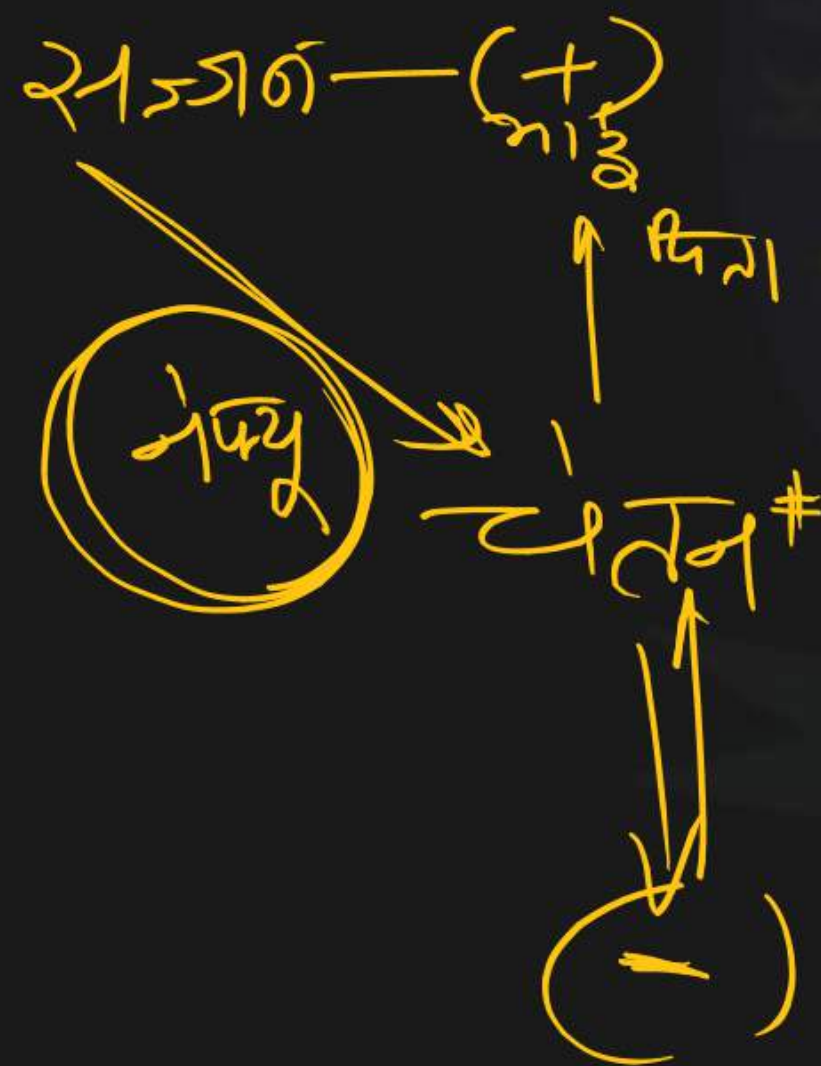 सज्जन — (+)
भाई
पिता
नेफ्यू
चेतन #
(-)